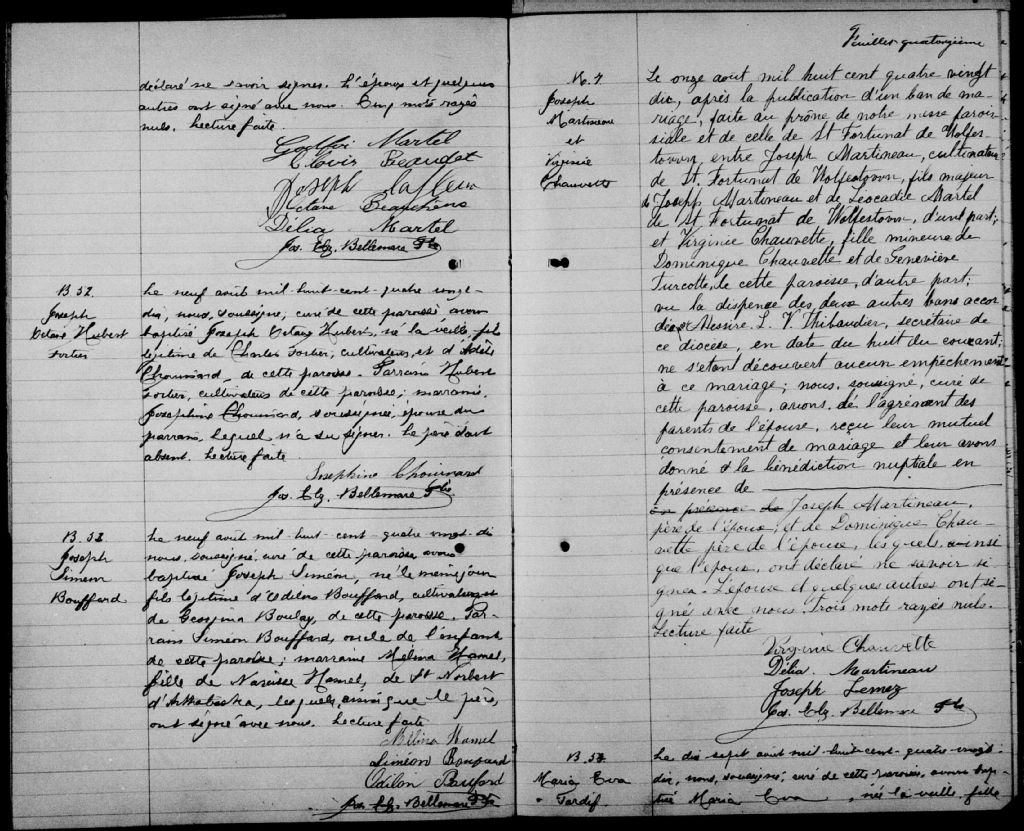 déclaré ne savoir signer. L'époux et quelques
autres ont signé avec nous. Cinq mots rayés
nuls. Lecture faite.
Martel
Clovis Beaudet
Joseph Lafleur
Octave Beauchene
Délia Martel
Jos. Elz. Bellemare Ptre
B. 52.
Joseph
Octave Hubert
Fortier
Le neuf août mil-huit-cent-quatre vingt-
dix, nous, soussigné, curé de cette paroisse avons
baptisé Joseph Octave Hubert, né la veille, fils
légitime de Charles Fortier, cultivateur, et d'Adèle
Chouinard, de cette paroisse. Parrain Hubert
Fortier, cultivateur de cette paroisse; marraine,
Josephine Chouinard, soussignée, épouse du
parrain, lequel n'a su signer. Le père étant
absent. Lecture faite.
Josephine Chouinard
Jos. Elz. Bellemare Ptre.
B. 53
Joseph
Siméon
Bouffard
Le neuf août mil-huit-cent-quatre vingt-dix
nous, soussigné curé de cette paroisse avons
baptisé Joseph Siméon, né le même jour
fils légitime d'Odilon Bouffard, cultivateur et
de Boulay, de cette paroisse. Par-
rain Siméon Bouffard, oncle de l'enfant
de cette paroisse; marraine Melina Hamel,
fille de Narcisse Hamel, de St Norbert
d'Arthabaska, lesquels, ainsi que le père,
ont signé avec nous. Lecture faite
Melina Hamel
Siméon Bouffard
Odilon Bouffard
Jos. Elz. Bellemare Ptre
Feuillet quatorzième
M. 7
Joseph
Martineau
et
Virginie
Chauvette
Le onze aout mil huit cent quatre vingt
dix, après la publication d'un ban de ma-
riage, faite au prône de notre messe parois-
siale et de celle de St Fortunat de Wolfes-
town, entre Joseph Martineau, cultivateur
de St. Fortunat de Wolfestown, fils majeur
de Joseph Martineau et de Leocadie Martel
de St Fortunat de Wolfestown, d'une part;
et Virginie Chauvette, fille mineure de
Dominique Chauvette et de Geneviève
Turcotte, de cette paroisse, d'autre part;
vu la dispense des deux autres bans accor-
dée par Messire L. V. Thibaudier, secrétaire de
ce diocèse, en date du huit du courant;
ne s'étant découvert aucun empêchement
à ce mariage; nous, soussigné, curé de
cette paroisse, avons, de l'agrément des
parents de l'épouse, reçu leur mutuel
consentement de mariage et leur avons
donné la bénédiction nuptiale en
présence de
en présence de Joseph Martineau,
père de l'époux, et de Dominique Chau-
vette père de l'épouse, lesquels, ainsi
que l'époux, ont déclaré ne savoir si-
gner. L'épouse et quelques autres ont si-
gné avec nous. Trois mots rayés nuls.
Lecture faite
Virginie Chauvette
Délia Martineau
Joseph Lemez
Jos. Elz. Bellemare Ptre
Maria Eva
Tardif.
Le dix sept août mil-huit-cent-quatre vingt-
dix, nous, soussigné, curé de cette paroisse, avons bap-
tisé Maria Eva, née la veille, fille